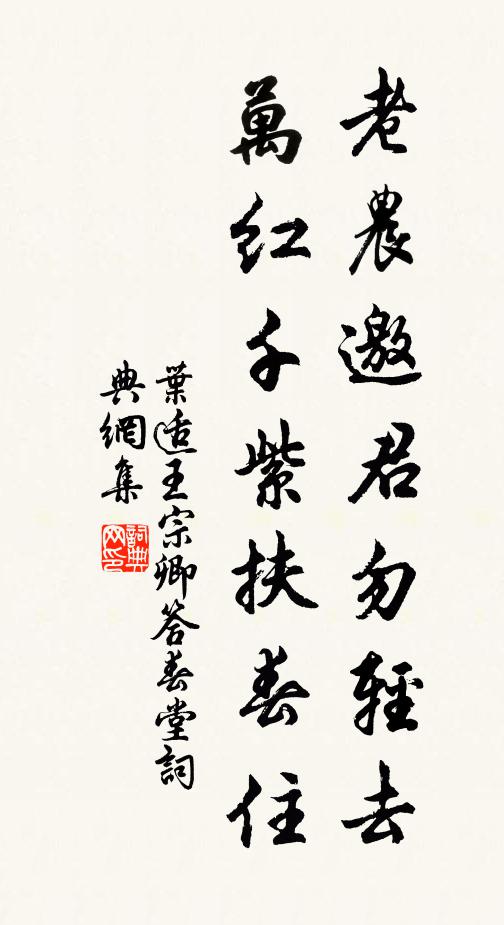 老農邀君勿輕去
萬紅千紫扶春住
葉适王宗卿答春堂詞
典網集
詞典
网印